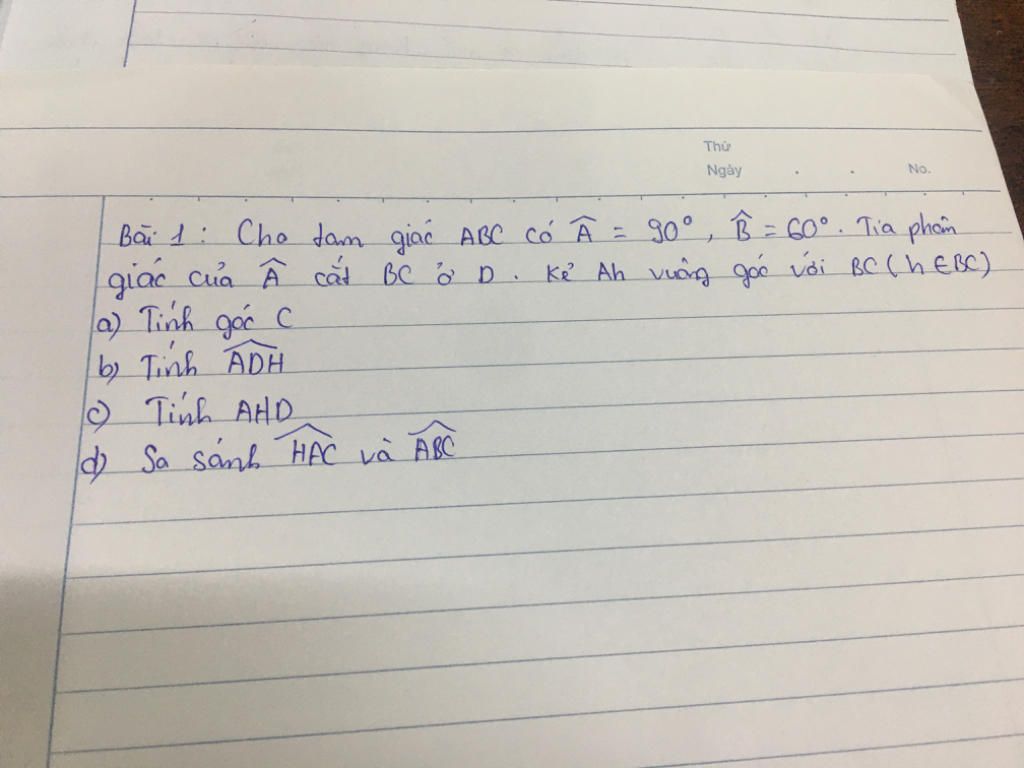 Thứ
Ngày . . No.
Bài 1 : Cho tam giác ABC có Â = 90°, B̂ = 60°. Tia phân
giác của Â cắt BC ở D. Kẻ Ah vuông góc với BC (h ∈ BC)
a) Tính góc C
b) Tính \widehat{ADH}
c) Tính AHD
d) Sa sánh \widehat{HAC} và \widehat{ABC}